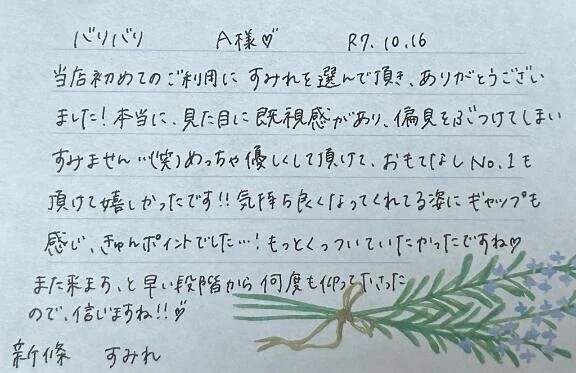 バリバリ A様♡ R7.10.16
当店初めてのご利用に すみれを選んで頂き、ありがとうござい
ました！本当に、見た目に既視感があり、偏見をぶつけてしまい
すみません…(笑)めっちゃ優しくして頂けて、おもてなしNo.1も
頂けて嬉しかったです!! 気持ち良くなってくれてる姿にギャップも
感じ、きゅんポイントでした…！もっとくっついていたかったですね♡
また来ます、と早い段階から何度も仰って下さった
ので、信じますね!!♡
新條 すみれ